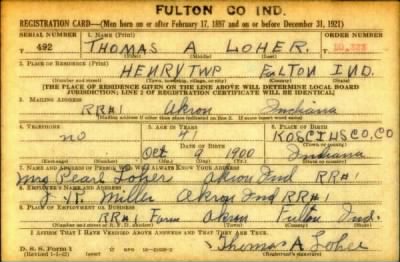 FULTON CO IND.
REGISTRATION CARD—(Men born on or after February 17, 1897 and on or before December 31, 1921)
SERIAL NUMBER 1. NAME (Print) ORDER NUMBER
T 492 THOMAS A LOHER. 10,323
(First) (Middle) (Last)
2. PLACE OF RESIDENCE (Print)
HENRY TWP FULTON IND.
(Number and street) (Town, township, village, or city) (County) (State)
[THE PLACE OF RESIDENCE GIVEN ON THE LINE ABOVE WILL DETERMINE LOCAL BOARD
JURISDICTION; LINE 2 OF REGISTRATION CERTIFICATE WILL BE IDENTICAL]
3. MAILING ADDRESS
RR#1 Akron Indiana
4. TELEPHONE 5. AGE IN YEARS 6. PLACE OF BIRTH
no 41 KOSCIUSCO, CO
DATE OF BIRTH (Town or county)
Oct 9 1900 Indiana
(Exchange) (Number) (Mo.) (Day) (Yr.) (State or country)
7. NAME AND ADDRESS OF PERSON WHO WILL ALWAYS KNOW YOUR ADDRESS
Mrs Pearl Loher Akron Ind RR#1
8. EMPLOYER'S NAME AND ADDRESS
Miller Akron Ind RR#1
9. PLACE OF EMPLOYMENT OR BUSINESS
RR#1 Farm Akron Fulton Ind.
(Number and street or R. F. D. number) (Town) (County) (State)
I AFFIRM THAT I HAVE VERIFIED ABOVE ANSWERS AND THAT THEY ARE TRUE.
D. S. S. Form 1 Thomas A Loher
(Revised 1-1-42) (over) (Registrant's signature)